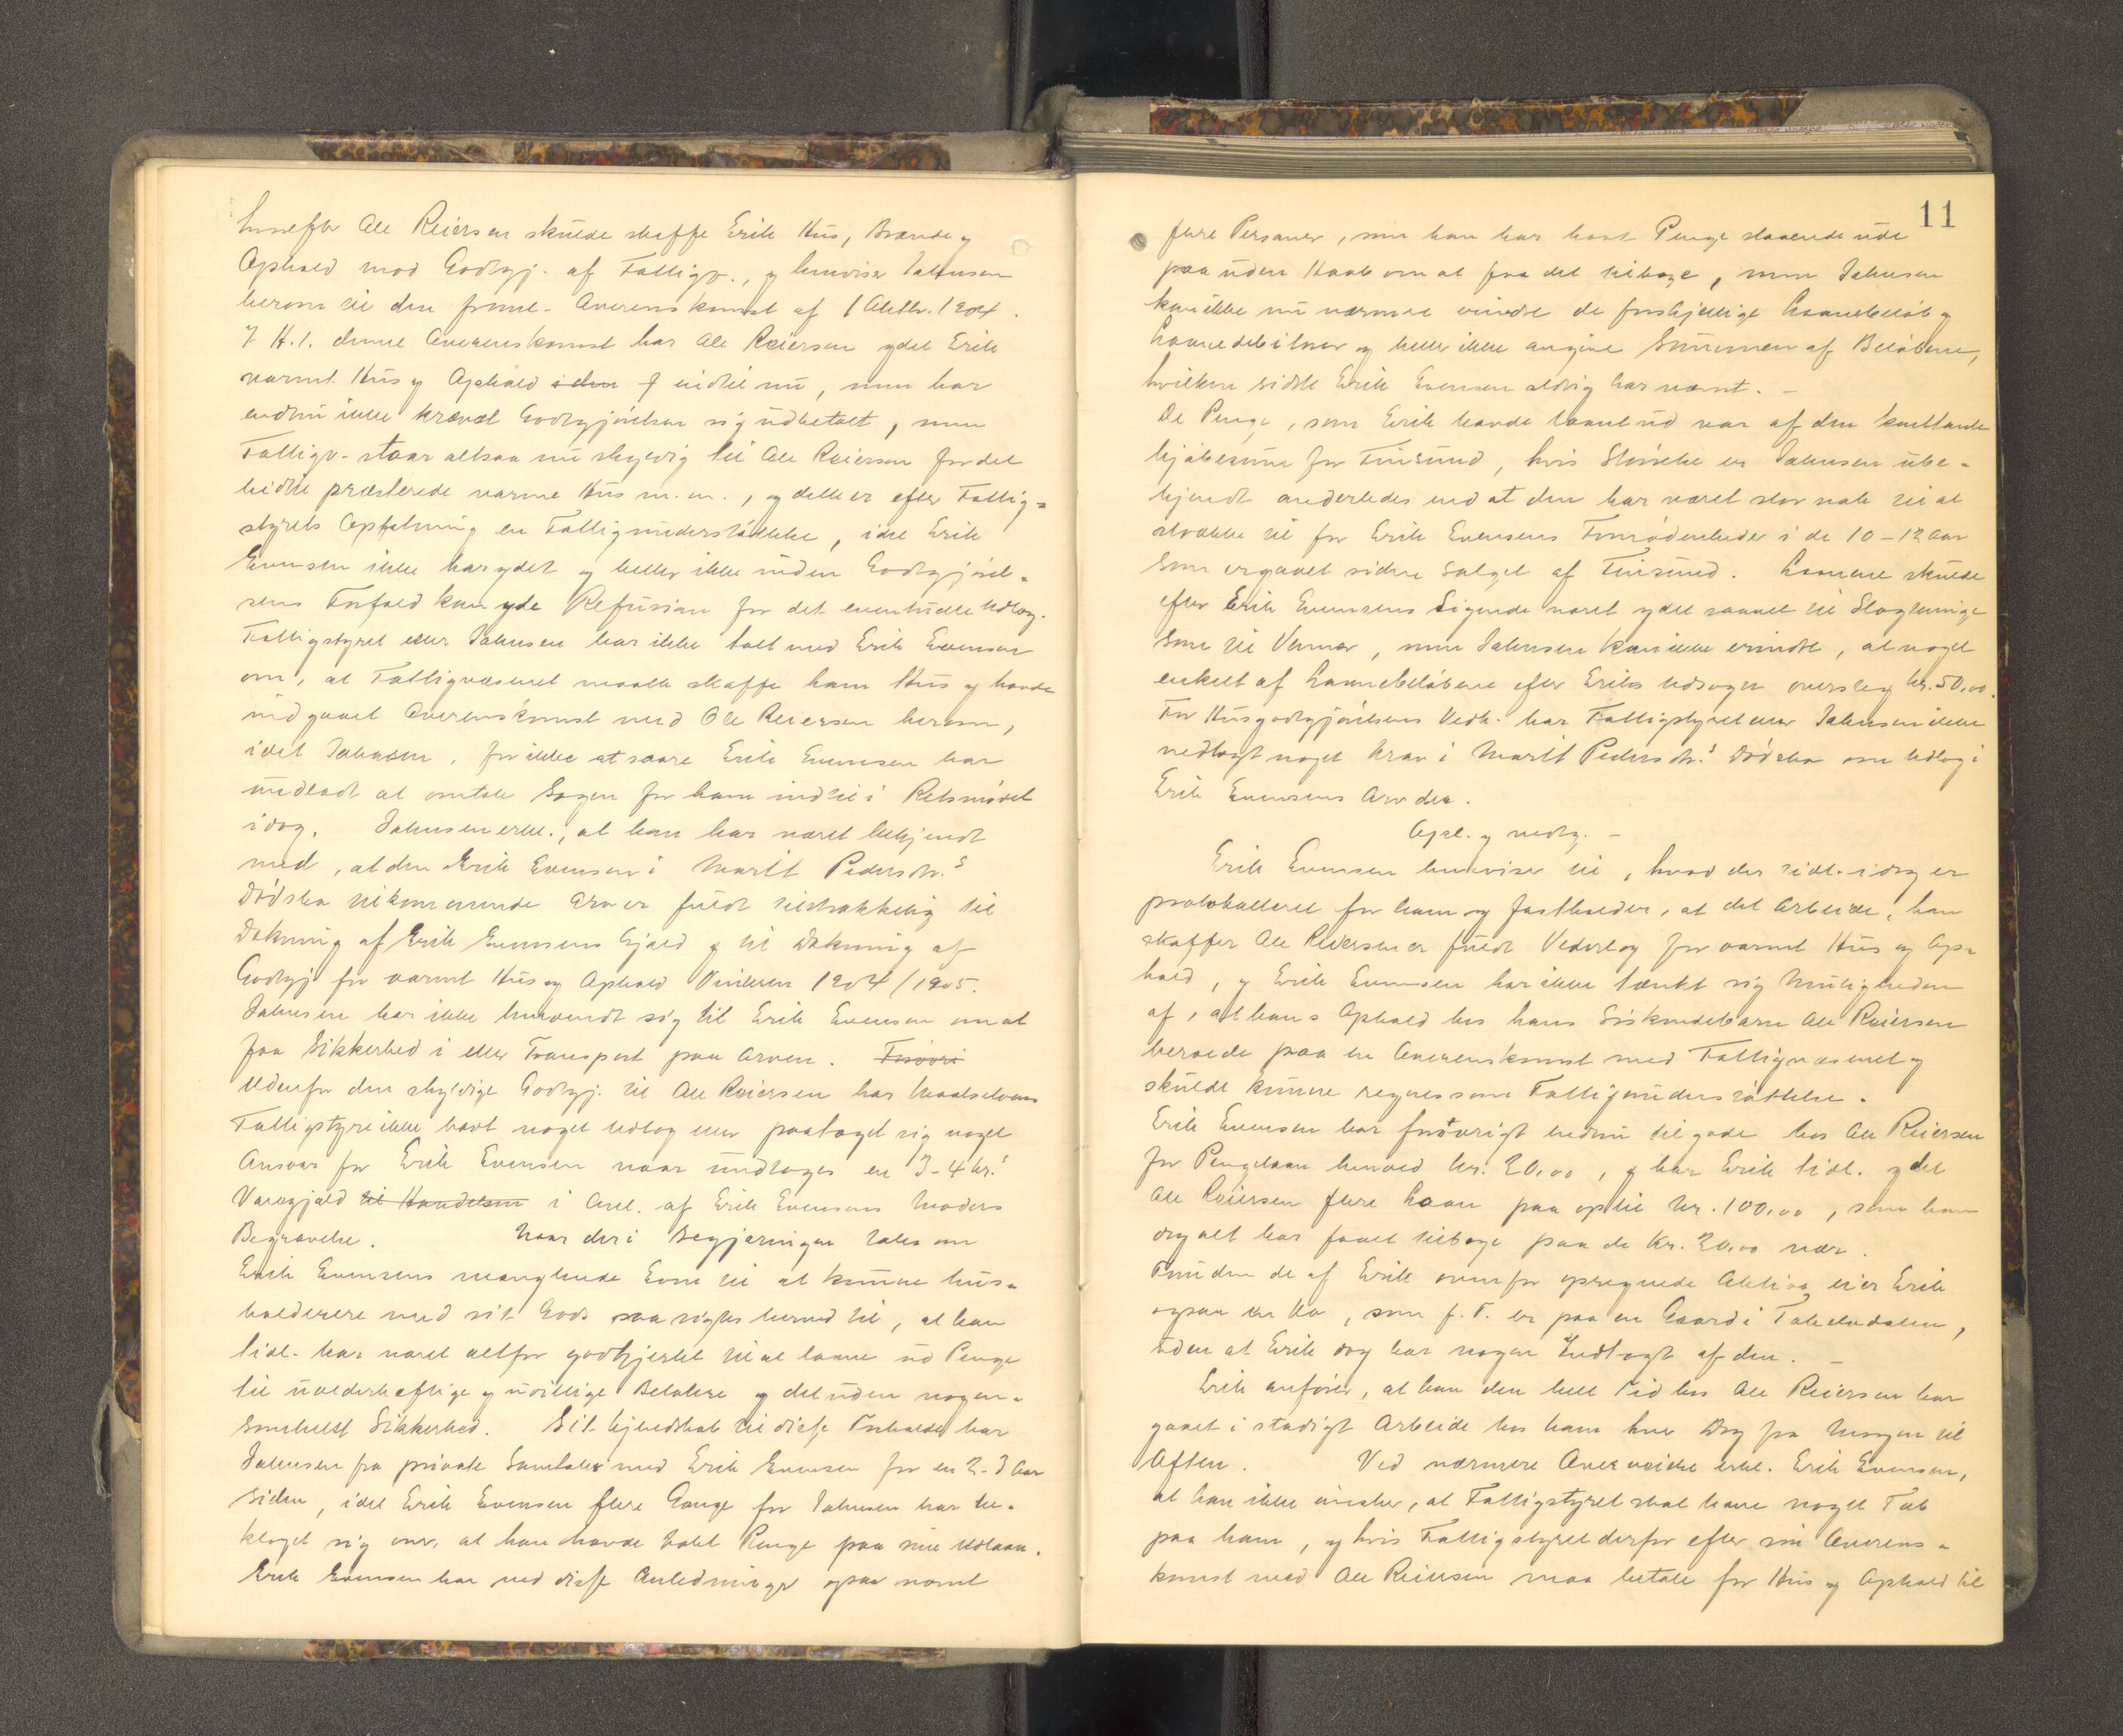 hvorefter Ole Reiersen skulde skaffe Erik Hus, Brænde og
Ophold mod Godtgj. af Fattigv., og henviser Johnsen
herom til den freml. Overenskomst af 1 Oktbr. 1904.
I H. t. denne Overenskomst har Ole Reiersen ydet Erik
varmt Hus og Ophold indtil nu, men har
endnu ikke krævet Godtgjørelsen sig udbetalt, men
Fattigv. staar altsaa nu skyldig til Ole Reiersen for det
hidtil præsterede varme Hus m.m., og dette er efter Fattig-
styrets Opfatning en Fattigunderstøttelse, idet Erik
Evensen ikke har ydet og heller ikke inden Godtgjørel-
sens Forfald kan yde Refusion for det eventuelle Udlæg.
Fattigstyret eller Johnsen har ikke talt med Erik Evensen
om, at Fattigvæsenet maatte skaffe ham Hus og havde
indgaaet Overenskomst med Ole Reiersen herom,
idet Johnsen, for ikke at saare Erik Evensen har
undladt at omtale Sagen for ham indtil i Retsmødet
idag. Johnsen erkl., at han har været bekjendt
med, at den Erik Evensen i Marit Pedersdtr.s
Dødsbo tilkommende Arv er fuldt tilstrækkelig til
Dækning af Erik Evensens Gjæld og til Dækning af
Godtgj. for varmt Hus og Ophold Vinteren 1904/1905.
Johnsen har ikke henvendt sig til Erik Evensen om at
faa Sikkerhed i eller Transport paa Arven. Forøvri
Udenfor den skyldige Godtgj. til Ole Reiersen har Maalselvens
Fattigstyre ikke havt noget Udlæg eller paataget sig noget
Ansvar for Erik Evensen naar undtages en 3-4 kr.s
Varegjæld til Handelsm i Anl. af Erik Evensens Moders
Begravelse. Naar der i Begjæringen tales om
Erik Evensens manglende Evne til at kunne hus-
holderere med sit Gods saa sigtes herved til, at han
tidl. har været altfor godhjertet til at laane ud Penge
til uvederheftige og uvillige Betalere og det uden nogen-
somhelst Sikkerhed. Sit Kjendskab til disse Forholde har
Johnsen fra private Samtaler med Erik Evensen for en 2-3 Aar
siden, idet Erik Evensen flere Gange for Johnsen har be-
klaget sig over, at han havde tabt Penge paa sine Udlaan.
Erik Evensen har ved disse Anledninger ogsaa nævnt
11
flere Personer, som han har havt Penge staaende ude
paa uden Haab om at faa det tilbage, men Johnsen
kan ikke nu nærmere erindre de forskjellige Laanebeløb og
Laanedebitorer og heller ikke angive Summen af Beløbene,
hvilken sidste Erik Evensen aldrig har nævnt. –
De Penge, som Erik havde laant ud var af den kontante
Kjøbesum for Finsund, hvis Størrelse er Johnsen ube-
kjendt anderledes end at den har været stor nok til at
strække til for Erik Evensens Fornødenheder i de 10-12 Aar
som er gaaet siden Salget af Finsund. Laanene skulde
efter Erik Evensens Sigende været ydet saavel til Slægtninge
som til Venner, men Johnsen kan ikke erindre, at noget
enkelt af Laanebeløbene efter Eriks Udsagn oversteg kr. 50,00.
For Husgodtgjørelsens Vedk. har Fattigstyret eller Johnsen ikke
nedlagt noget Krav i Marit Pedersdtr.s Dødsbo om Udlæg i
Erik Evensens Arvder.
Opl. og vedtg. –
Erik Evensen henviser til, hvad der tidl. idag er
protokolleret for ham og fastholder, at det Arbeide, han
skaffer Ole Reiersen er fuldt Vederlag for varmt Hus og Op-
hold, og Erik Evensen har ikke tænkt sig Muligheden
af, at hans Ophold hos hans Sødskendebarn Ole Reiersen
beroede paa en Overenskomst med Fattigvæsenet og
skulde kunne regnes som Fattigunderstøttelse.
Erik Evensen har forøvrigt endnu tilgode hos Ole Reiersen
for Pengelaan henved kr. 20,00, og har Erik tidl. ydet
Ole Reiersen flere Laan paa optil kr. 100,00, som han
dog alt har faaet tilbage paa de Kr. 20,00 nær.
Foruden de af Erik ovenfor opregnede Aktiva eier Erik
ogsaa en Ko, som f. T. er paa en Gaard i Takelvdalen,
uden at Erik dog har nogen Indtægt af den. –
Erik anfører, at han den hele Tid hos Ole Reiersen har
gaaet i stadigt Arbeide hos ham hver Dag fra Morgen til
Aften. Ved nærmere Overveielse erkl. Erik Evensen,
at han ikke ønsker, at Fattigstyret skal have noget Tab
paa ham, og hvis Fattigstyret derfor efter sin Overens-
komst med Ole Reiersen maa betale for Hus og Ophold til